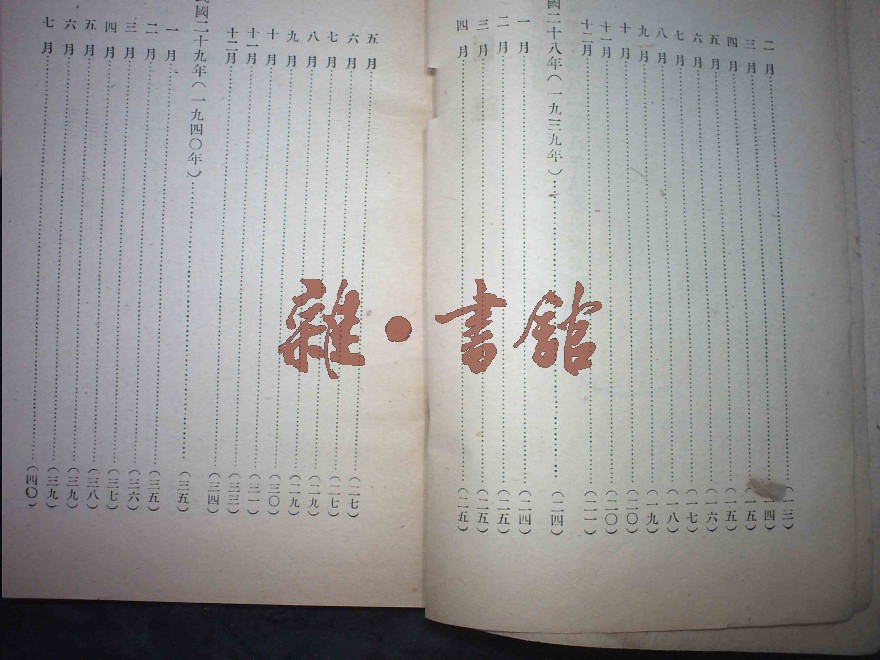 二月……(一三)
三月……(一四)
四月……(一五)
五月……(一五)
六月……(一六)
七月……(一七)
八月……(一八)
九月……(一九)
十月……(二〇)
十一月……(二〇)
十二月……(二一)
國二十八年(一九三九年)……(二四)
一月……(二四)
二月……(二五)
三月……(二五)
四月……(二五)
五月……(二七)
六月……(二七)
七月……(二九)
八月……(二九)
九月……(三〇)
十月……(三一)
十一月……(三三)
十二月……(三四)
民國二十九年(一九四〇年)……(三五)
一月……(三五)
二月……(三六)
三月……(三七)
四月……(三八)
五月……(三九)
六月……(三九)
七月……(四〇)
雜·書館